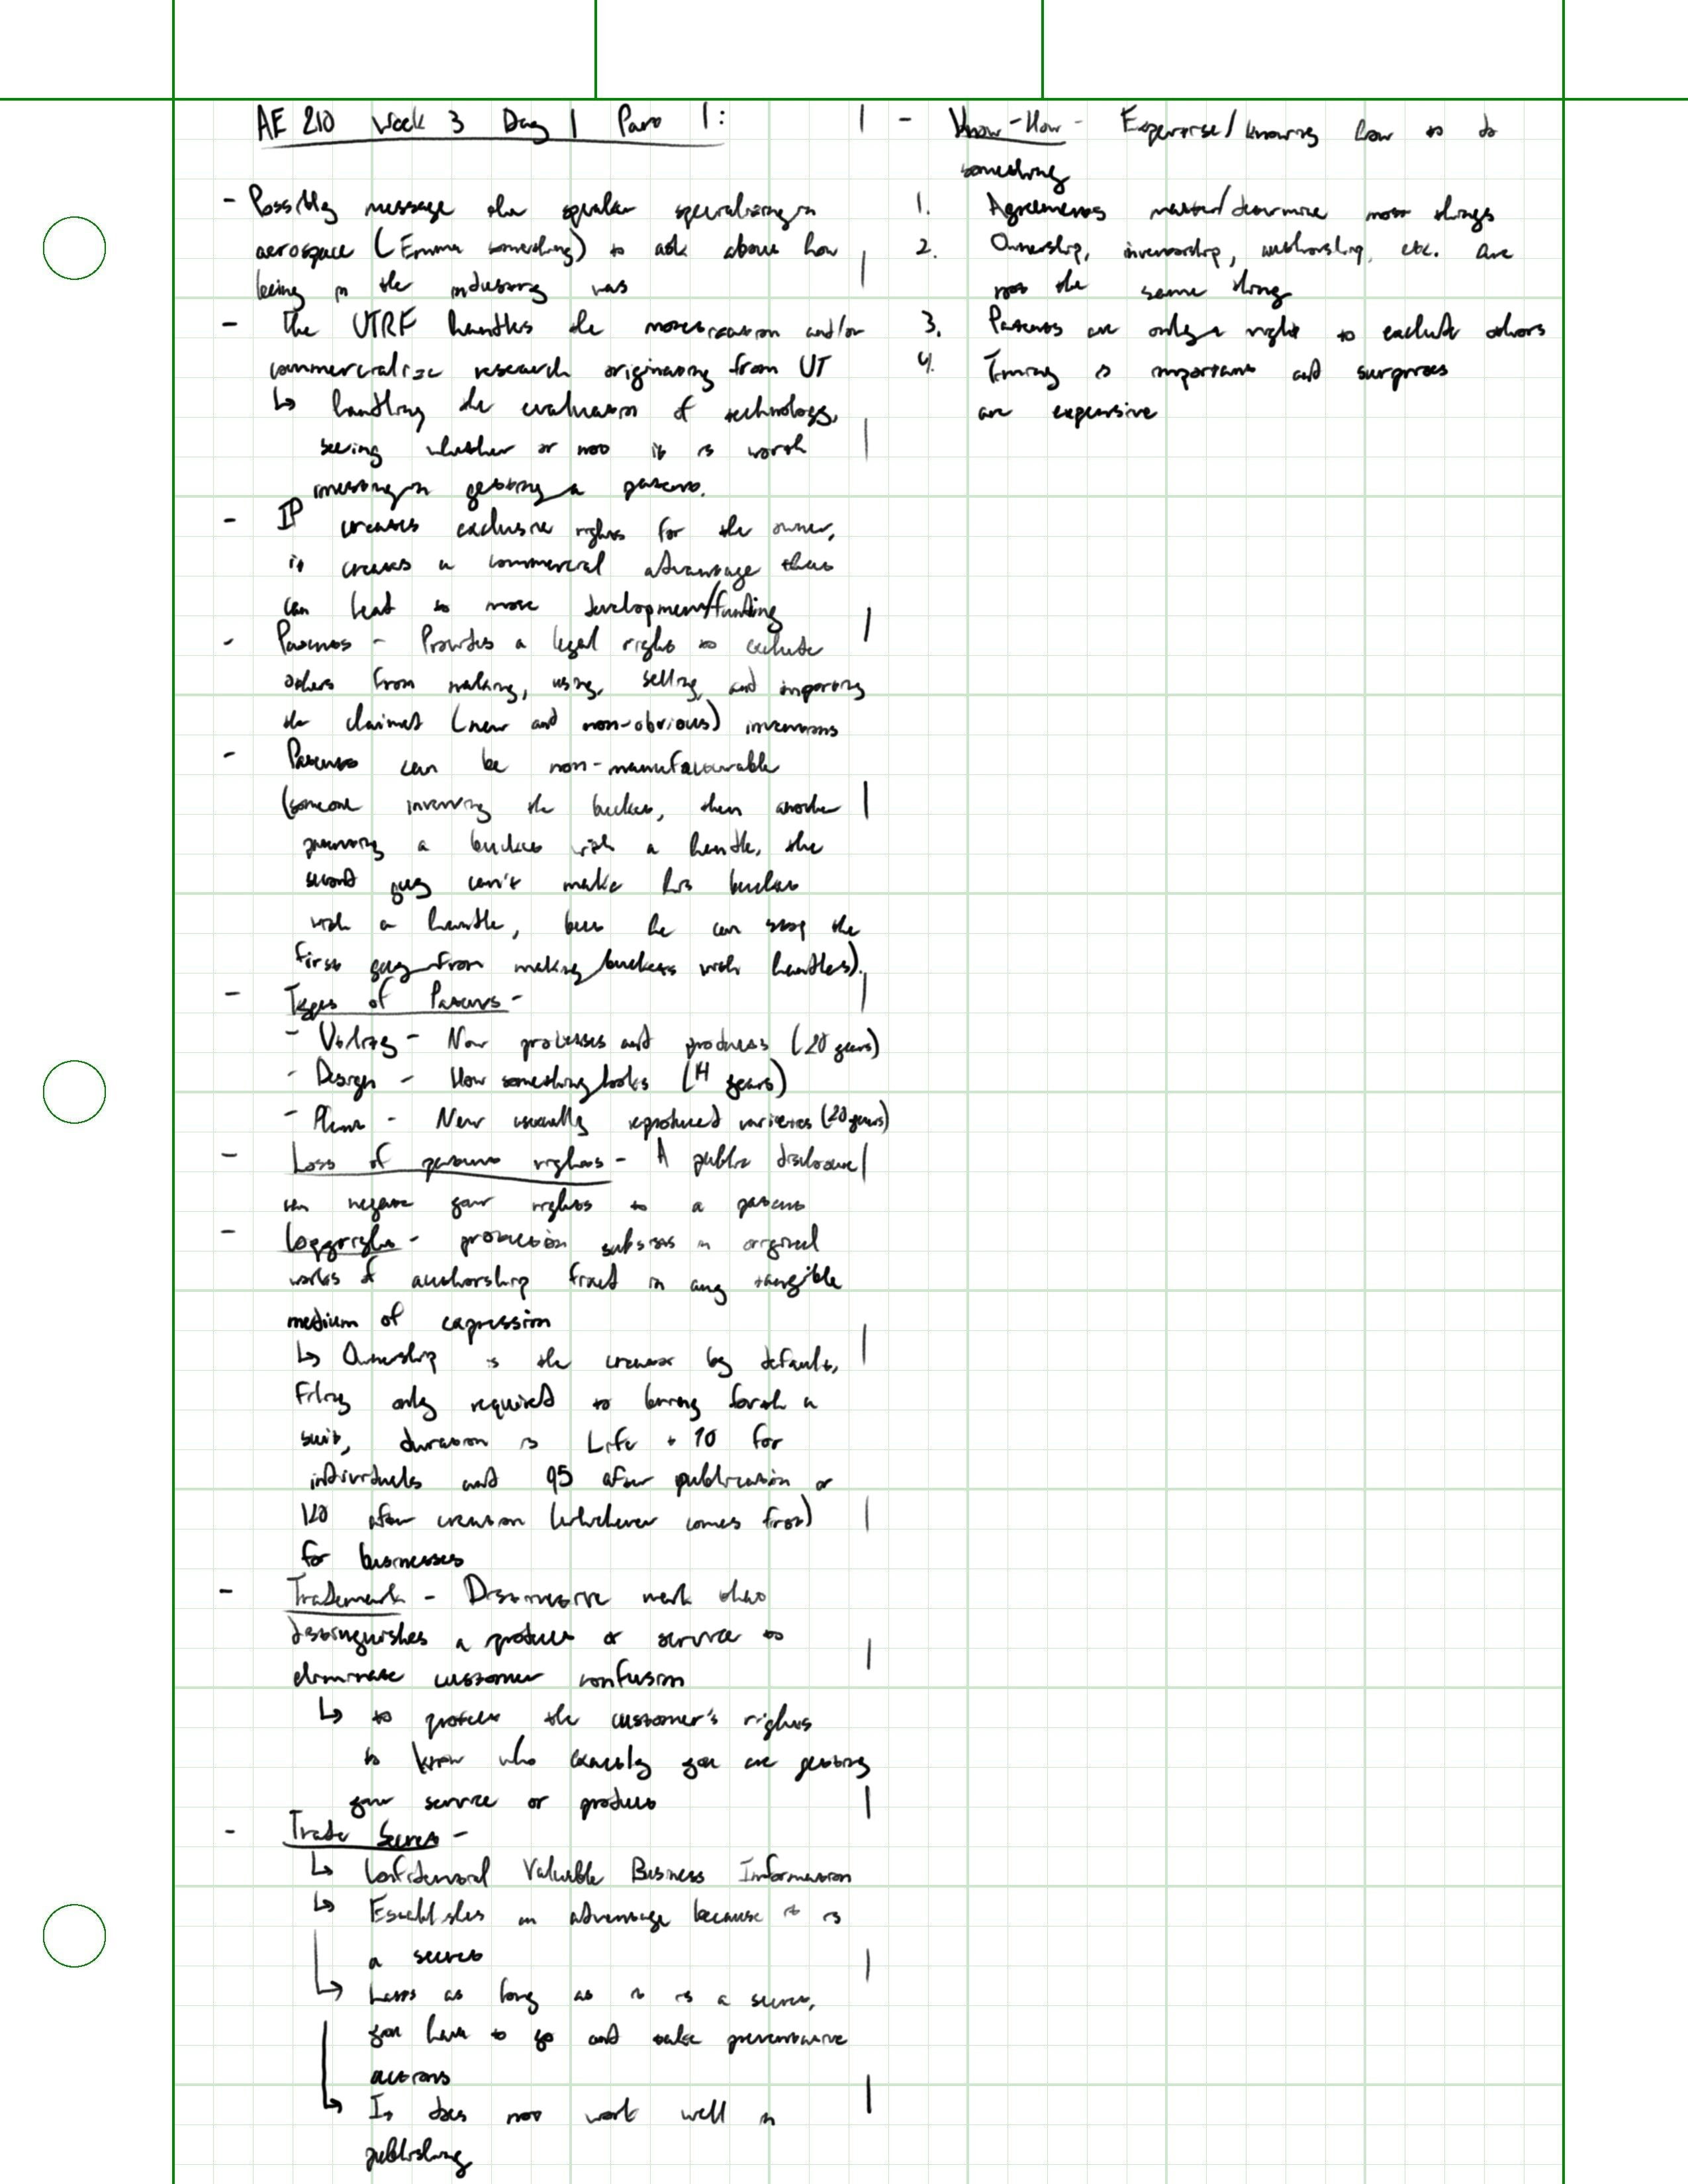 AE 210 Week 3 Day 1 Part 1:
- Possibly message the speaker specializing in
aerospace (Emma something) to ask about how
being in the industry was
- The UTRF handles the monetization and/or
commercialize research originating from UT
↳ handling the evaluation of technology,
seeing whether or not it is worth
investing in getting a patent.
- IP creates exclusive rights for the owner,
it creates a commercial advantage that
can lead to more development/funding
- Patents - Provides a legal right to exclude
others from making, using, selling, and importing
the claimed (new and non-obvious) inventions
- Patents can be non-manufacturable
(someone inventing the bucket, then another
patenting a bucket with a handle, the
second guy can't make his bucket
with a handle, but he can stop the
first guy from making buckets with handles).
- Types of Patents -
- Utility - New processes and products (20 years)
- Design - How something looks (14 years)
- Plant - New usually reproduced varieties (20 years)
- Loss of patent rights - A public disclosure
can negate your rights to a patent
- Copyright - protection subsists in original
works of authorship fixed in any tangible
medium of expression
↳ Ownership is the creator by default,
filing only required to bring forth a
suit, duration is Life + 70 for
individuals and 95 after publication or
120 after creation (whichever comes first)
for businesses
- Trademark - Distinctive mark that
distinguishes a product or service to
eliminate customer confusion
↳ to protect the customer's rights
to know who exactly you are getting
your service or product
- Trade Secret -
↳ Confidential Valuable Business Information
↳ Establishes an advantage because it is
a secret
↳ Lasts as long as it is a secret,
you have to go and take preventative
actions
↳ It does not work well in
publishing
- Know-How - Expertise/knowing how to do
something
1. Agreements matter/determine most things
2. Ownership, inventorship, authorship, etc. are
not the same thing
3. Patents are only a right to exclude others
4. Timing is important and surprises
are expensive